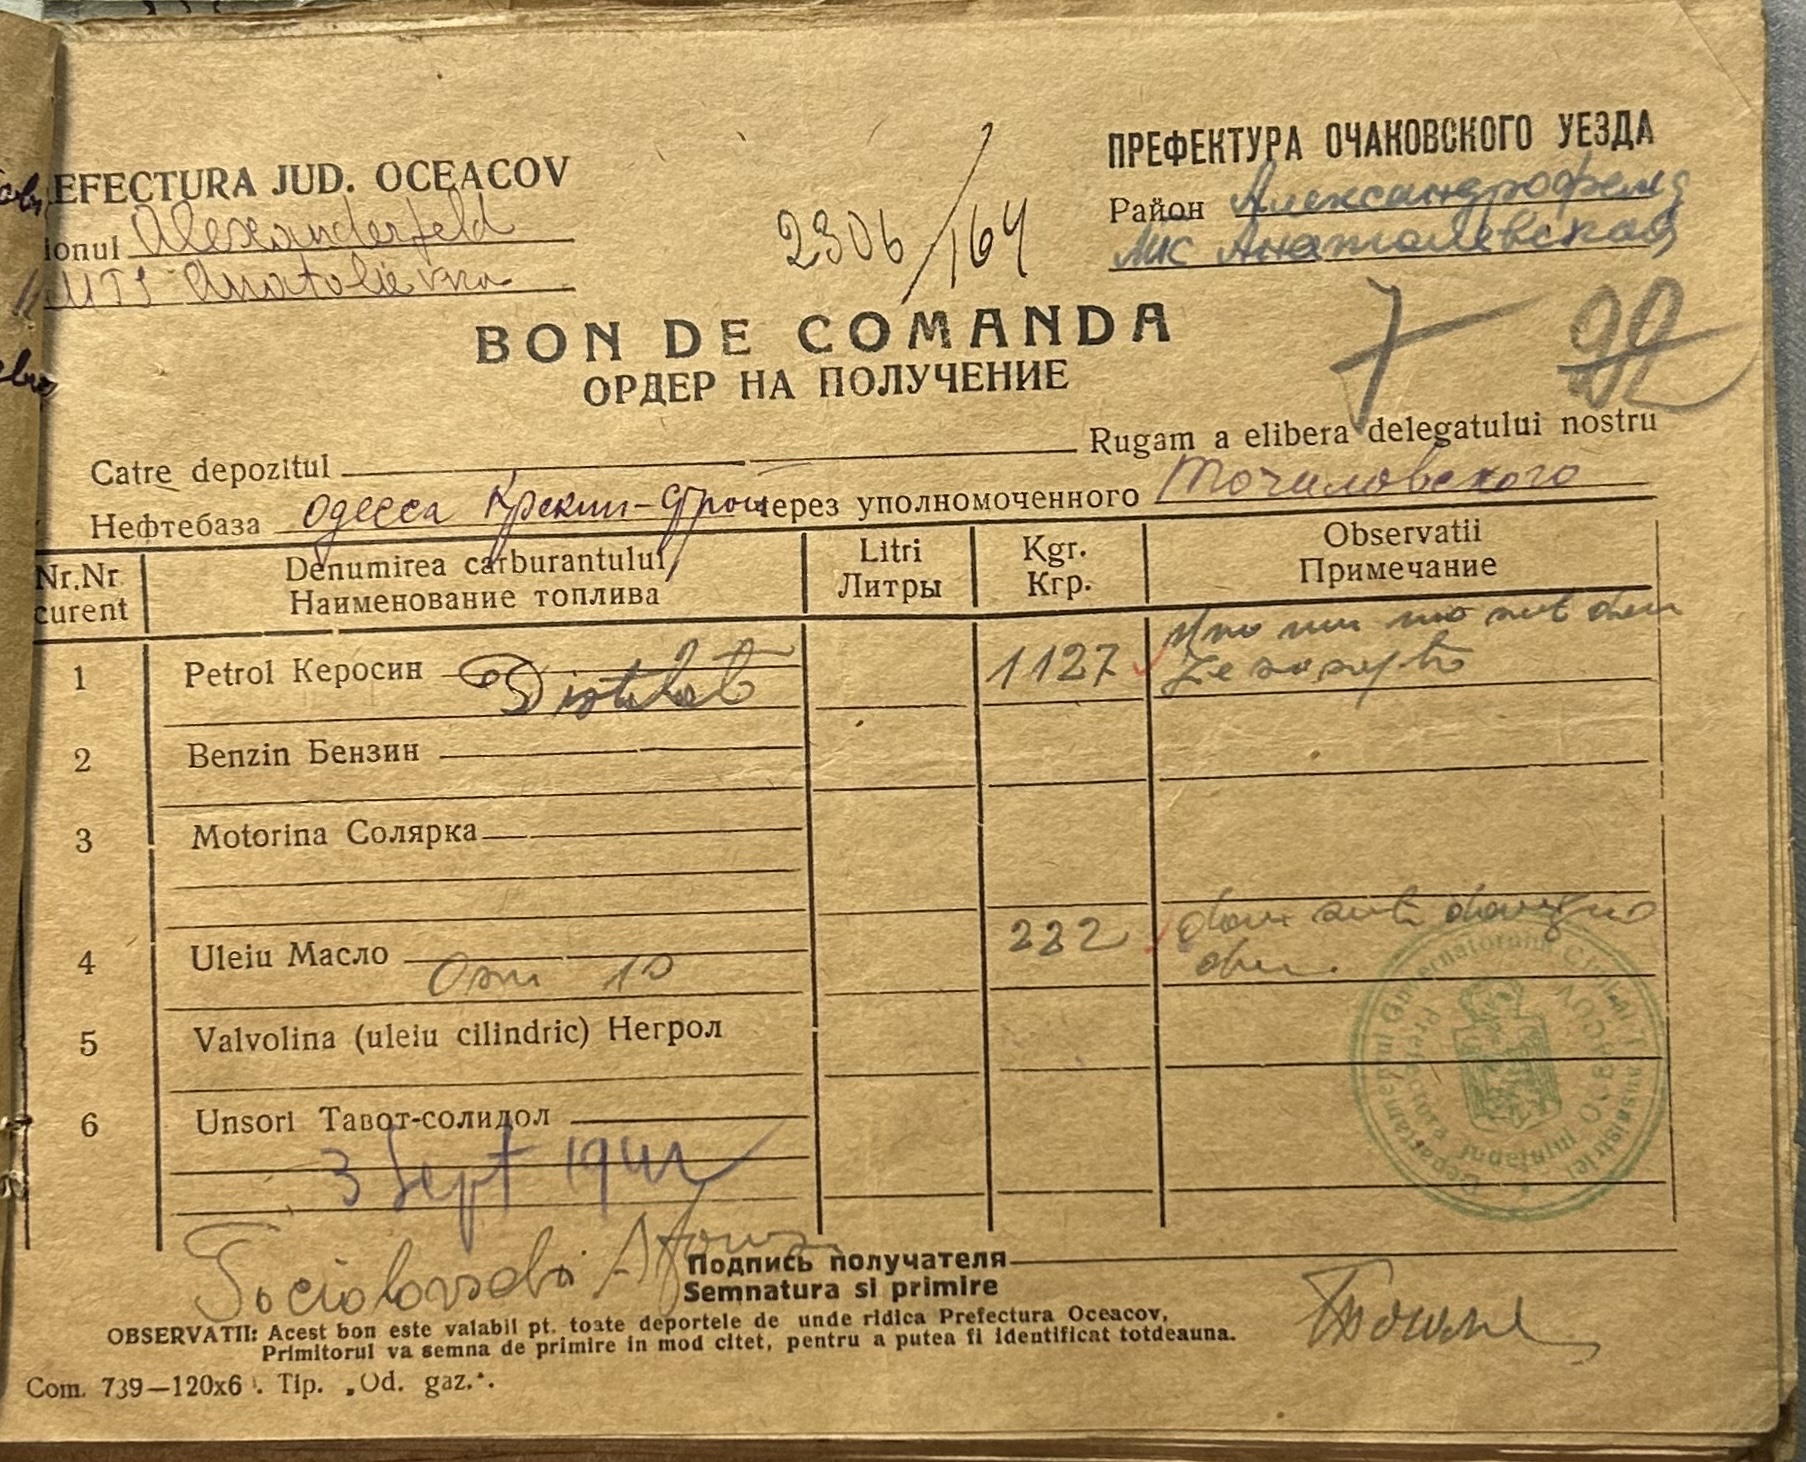 EFECTURA JUD. OCEACOV
ПРЕФЕКТУРА ОЧАКОВСКОГО УЕЗДА
ionul Alexanderfeld
Район Александрофельд
MTS Anatolievna
МТС Анатолевская
2306/164
7 92
BON DE COMANDA
ОРДЕР НА ПОЛУЧЕНИЕ
Catre depozitul Rugam a elibera delegatului nostru
Нефтебаза Одесса через уполномоченного Точиловского
Nr.Nr curent
Denumirea carburantului
Наименование топлива
Litri
Литры
Kgr.
Кгр.
Observatii
Примечание
1 Petrol Керосин Distilat 1127
2 Benzin Бензин
3 Motorina Солярка
4 Uleiu Масло 10 222
5 Valvolina (uleiu cilindric) Негрол
6 Unsori Тавот-солидол
3 Sept 1942
Подпись получателя
Semnatura si primire
OBSERVATII: Acest bon este valabil pt. toate deportele de unde ridica Prefectura Oceacov,
Primitorul va semna de primire in mod citet, pentru a putea fi identificat totdeauna.
Com. 739—120x6 . Tip. „Od. gaz.".